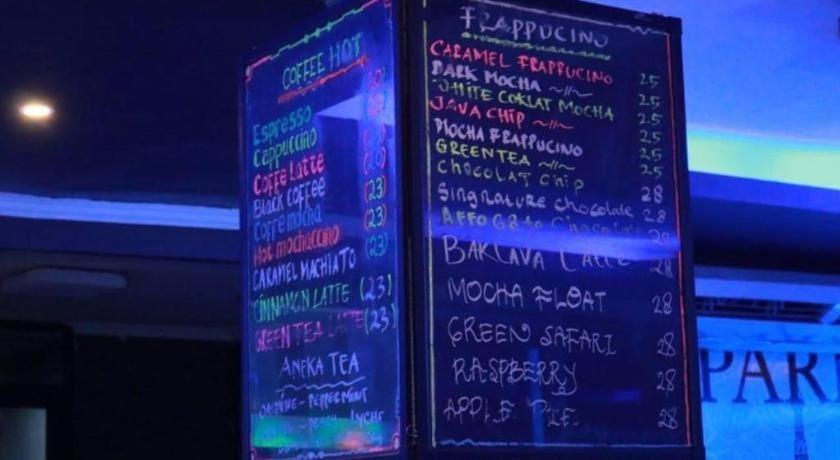 COFFEE HOT
Espresso
Cappuccino
Coffe Latte
Black coffee
Coffe mocha (23)
Hot mochaccino (23)
CARAMEL MACHIATO (23)
CINNAMON LATTE (23)
GREEN TEA LATTE (23)
ANEKA TEA
PEPPERMINT
LYCHE
FRAPPUCINO
CARAMEL FRAPPUCINO 25
DARK MOCHA 25
WHITE COKLAT MOCHA 25
JAVA CHIP 25
MOCHA FRAPPUCINO 25
GREENTEA 25
CHOCOLAT CHIP
Singnature chocolate 28
AFFOGATO Chocolate 28
BAKLAVA 28
MOCHA FLOAT 28
GREEN SAFARI 28
RASPBERRY 28
APPLE PIE 28
PARI